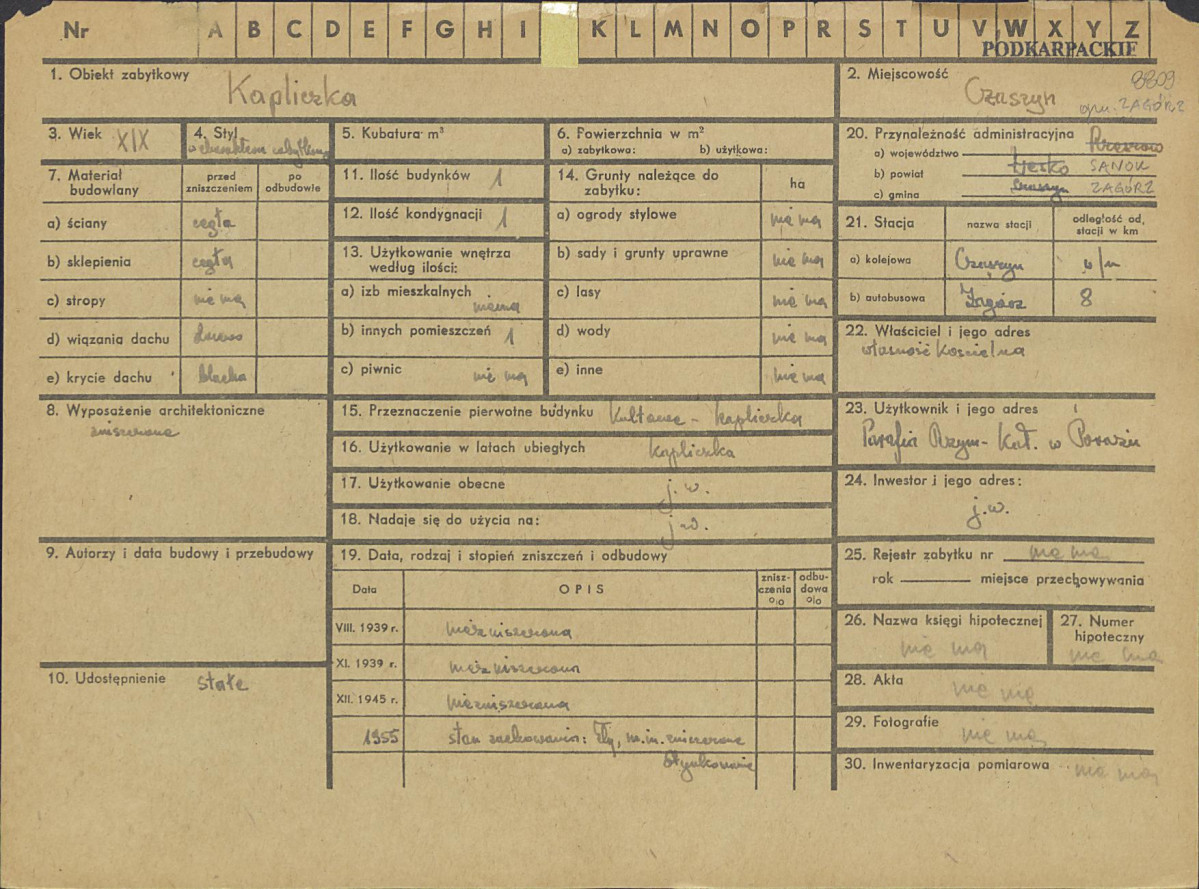 Nr A B C D E F G H I K L M N O P R S T U V W X Y Z
PODKARPACKIE
1. Obiekt zabytkowy
Kapliczka
2. Miejscowość
Czaszyn
8809
gm. ZAGÓRZ
3. Wiek XIX
4. Styl
o charakterze zabytkowym
5. Kubatura m³
6. Powierzchnia w m²
a) zabytkowa: b) użytkowa:
20. Przynależność administracyjna
a) województwo Rzeszów
b) powiat Lesko SANOK
c) gmina Czaszyn ZAGÓRZ
7. Materiał budowlany
przed zniszczeniem
po odbudowie
a) ściany cegła
b) sklepienia cegła
c) stropy nie ma
d) wiązania dachu drewno
e) krycie dachu blacha
11. Ilość budynków 1
12. Ilość kondygnacji 1
13. Użytkowanie wnętrza według ilości:
a) izb mieszkalnych niema
b) innych pomieszczeń 1
c) piwnic nie ma
14. Grunty należące do zabytku:
ha
a) ogrody stylowe nie ma
b) sady i grunty uprawne nie ma
c) lasy nie ma
d) wody nie ma
e) inne nie ma
21. Stacja
nazwa stacji
odległość od, stacji w km
a) kolejowa Czaszyn w/m
b) autobusowa Zagórz 8
22. Właściciel i jego adres
własność Kościelna
8. Wyposażenie architektoniczne
zniszczone
15. Przeznaczenie pierwotne budynku Kultowe - kapliczka
16. Użytkowanie w latach ubiegłych kapliczka
17. Użytkowanie obecne j. w.
18. Nadaje się do użycia na: j. w.
23. Użytkownik i jego adres
Parafia Rzym-Kat. w Porażu
24. Inwestor i jego adres:
j.w.
9. Autorzy i data budowy i przebudowy
10. Udostępnienie stałe
19. Data, rodzaj i stopień zniszczeń i odbudowy
Data
OPIS
znisz-
czenia
o/o
odbu-
dowa
o/o
VIII. 1939 r. niezniszczona
XI. 1939 r. niezniszczona
XII. 1945 r. niezniszczona
1955 stan zachowania: zły, m.in. zniszczone
otynkowanie
25. Rejestr zabytku nr nie ma
rok miejsce przechowywania
26. Nazwa księgi hipotecznej
nie ma
27. Numer hipoteczny
nie ma
28. Akta nie ma
29. Fotografie
nie ma
30. Inwentaryzacja pomiarowa nie ma